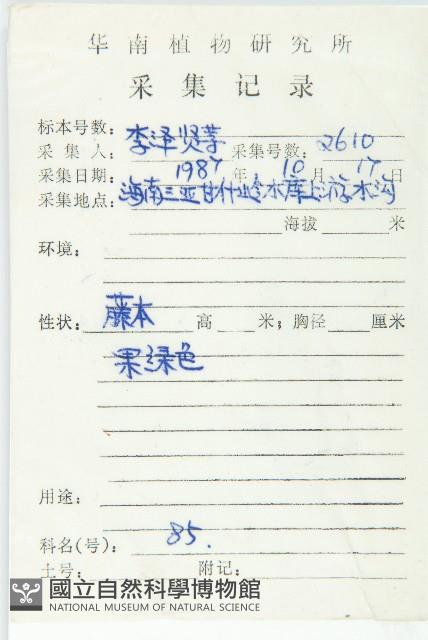 华南植物研究所
采集记录
标本号数：
采集人：李泽贤等 采集号数：2610
采集日期：1987年 10月 17日
采集地点：海南三亚甘什岭水库上游水沟
海拔 米
环境：
性状：藤本 高 米；胸径 厘米
果绿色
用途：
科名(号)：85.
土号： 附记：
國立自然科學博物館
NATIONAL MUSEUM OF NATURAL SCIENCE